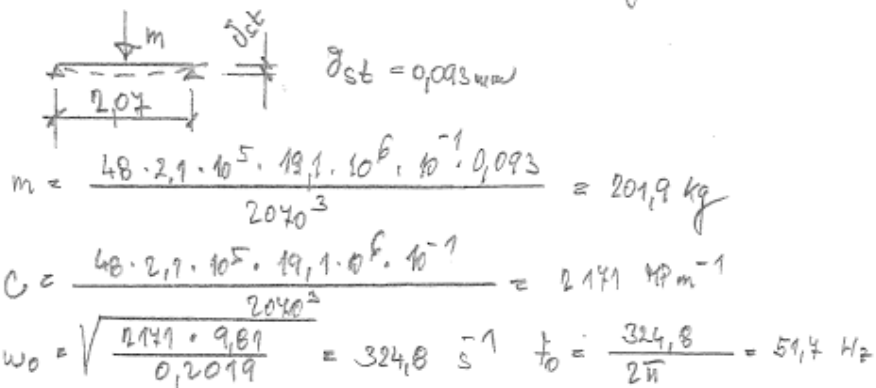 m δst
δst = 0,093 mm
2,07
m = 48 · 2,1 · 10^5 · 19,1 · 10^6 · 10^-1 · 0,093 / 2070^3 = 201,9 kg
C = 48 · 2,1 · 10^5 · 19,1 · 10^6 · 10^-1 / 2070^3 = 2171 MP m^-1
ω0 = √(2171 · 9,81 / 0,2019) = 324,8 s^-1 f0 = 324,8 / 2π = 51,7 Hz